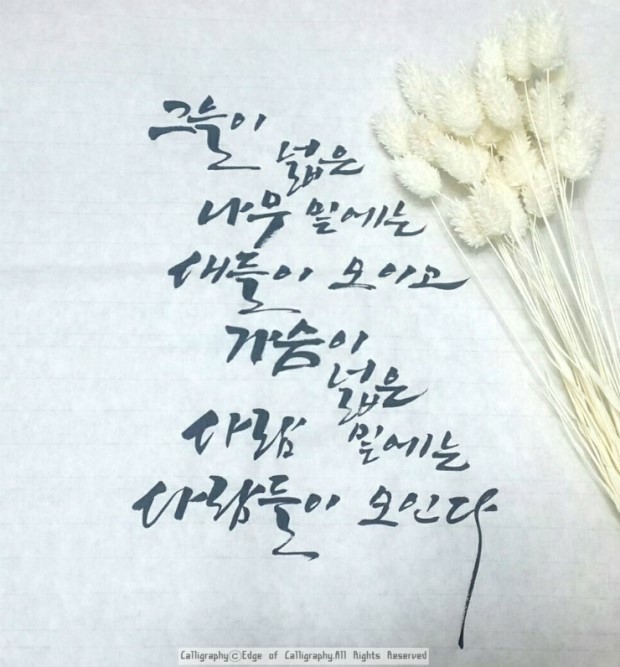 그늘이
넓은
나무 밑에는
새들이 모이고
가슴이
넓은
사람 밑에는
사람들이 모인다
Calligraphy©Edge of Calligraphy.All Rights Reserved